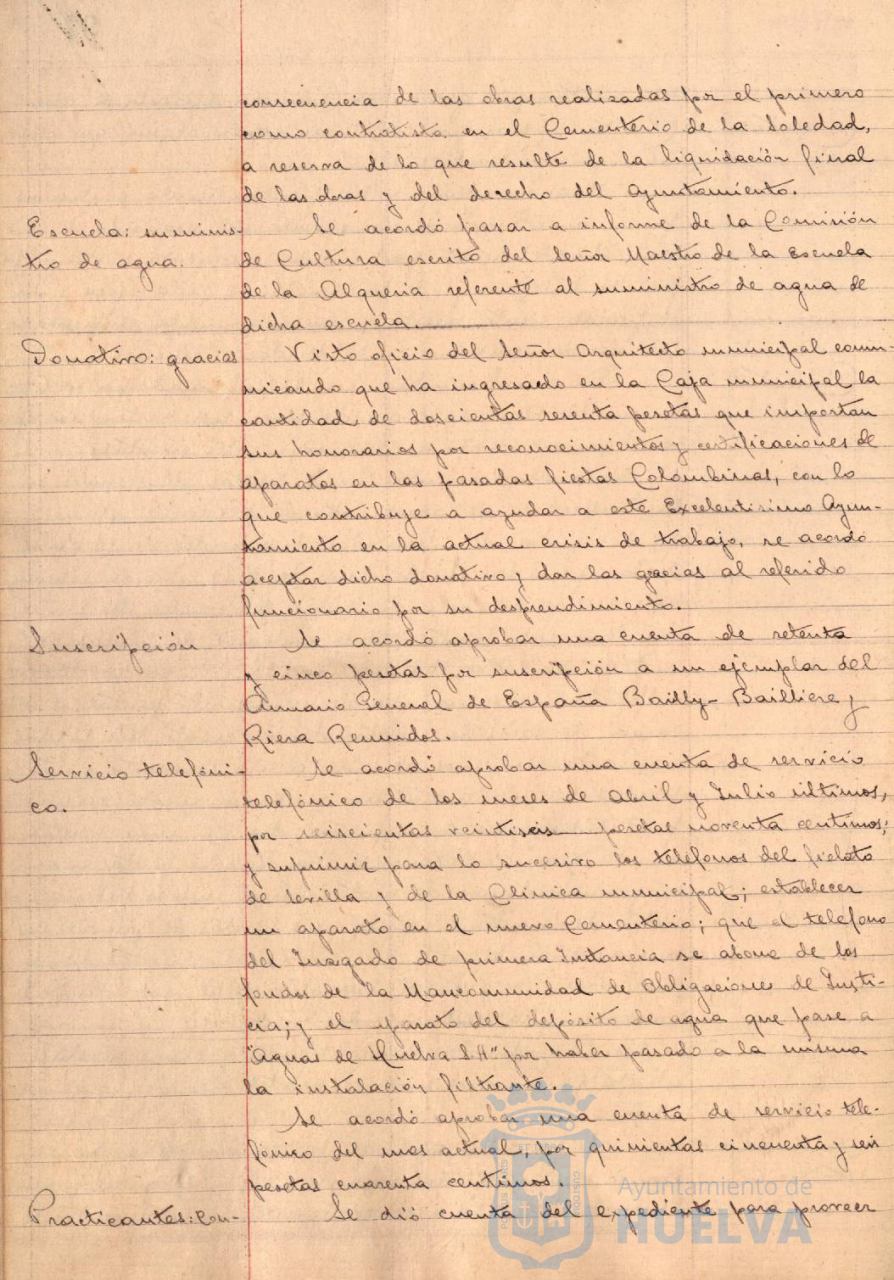 consecuencia de las obras realizadas por el primero
como contratista en el Cementerio de la Soledad,
a reserva de lo que resulte de la liquidación final
de las obras y del derecho del Ayuntamiento.
Escuela: suminis-
tro de agua.
Se acordó pasar a informe de la Comisión
de Cultura escrito del Señor Maestro de la Escuela
de la Alqueria referente al suministro de agua de
dicha escuela.
Donativo: gracias
Visto oficio del Señor Arquitecto municipal comu-
nicando que ha ingresado en la Caja municipal la
cantidad de doscientas sesenta pesetas que importan
sus honorarios por reconocimientos y certificaciones de
aparatos en las pasadas fiestas Colombinas, con lo
que contribuye a ayudar a este Excelentisimo Ayun-
tamiento en la actual crisis de trabajo, se acordó
aceptar dicho donativo y dar las gracias al referido
funcionario por su desprendimiento.
Suscripción
Se acordó aprobar una cuenta de setenta
y cinco pesetas por suscripción a un ejemplar del
Anuario General de España Bailly-Bailliere y
Riera Reunidos.
Servicio telefóni-
co.
Se acordó aprobar una cuenta de servicio
telefónico de los meses de Abril y Julio últimos,
por seiscientas veintiseis pesetas noventa centimos;
y suprimir para lo sucesivo los telefonos del fielato
de Sevilla y de la Clinica municipal; establecer
un aparato en el nuevo Cementerio; que el telefono
del Juzgado de primera Instancia se abone de los
fondos de la Mancomunidad de Obligaciones de Justi-
cia; y el aparato del depósito de agua que pase a
"Aguas de Huelva S.A" por haber pasado a la misma
la instalación filtrante.
Se acordó aprobar una cuenta de servicio tele-
fónico del mes actual, por quinientas cincuenta y seis
pesetas cuarenta centimos.
Practicantes: con-
Se dió cuenta del expediente para proveer
Ayuntamiento de
HUELVA